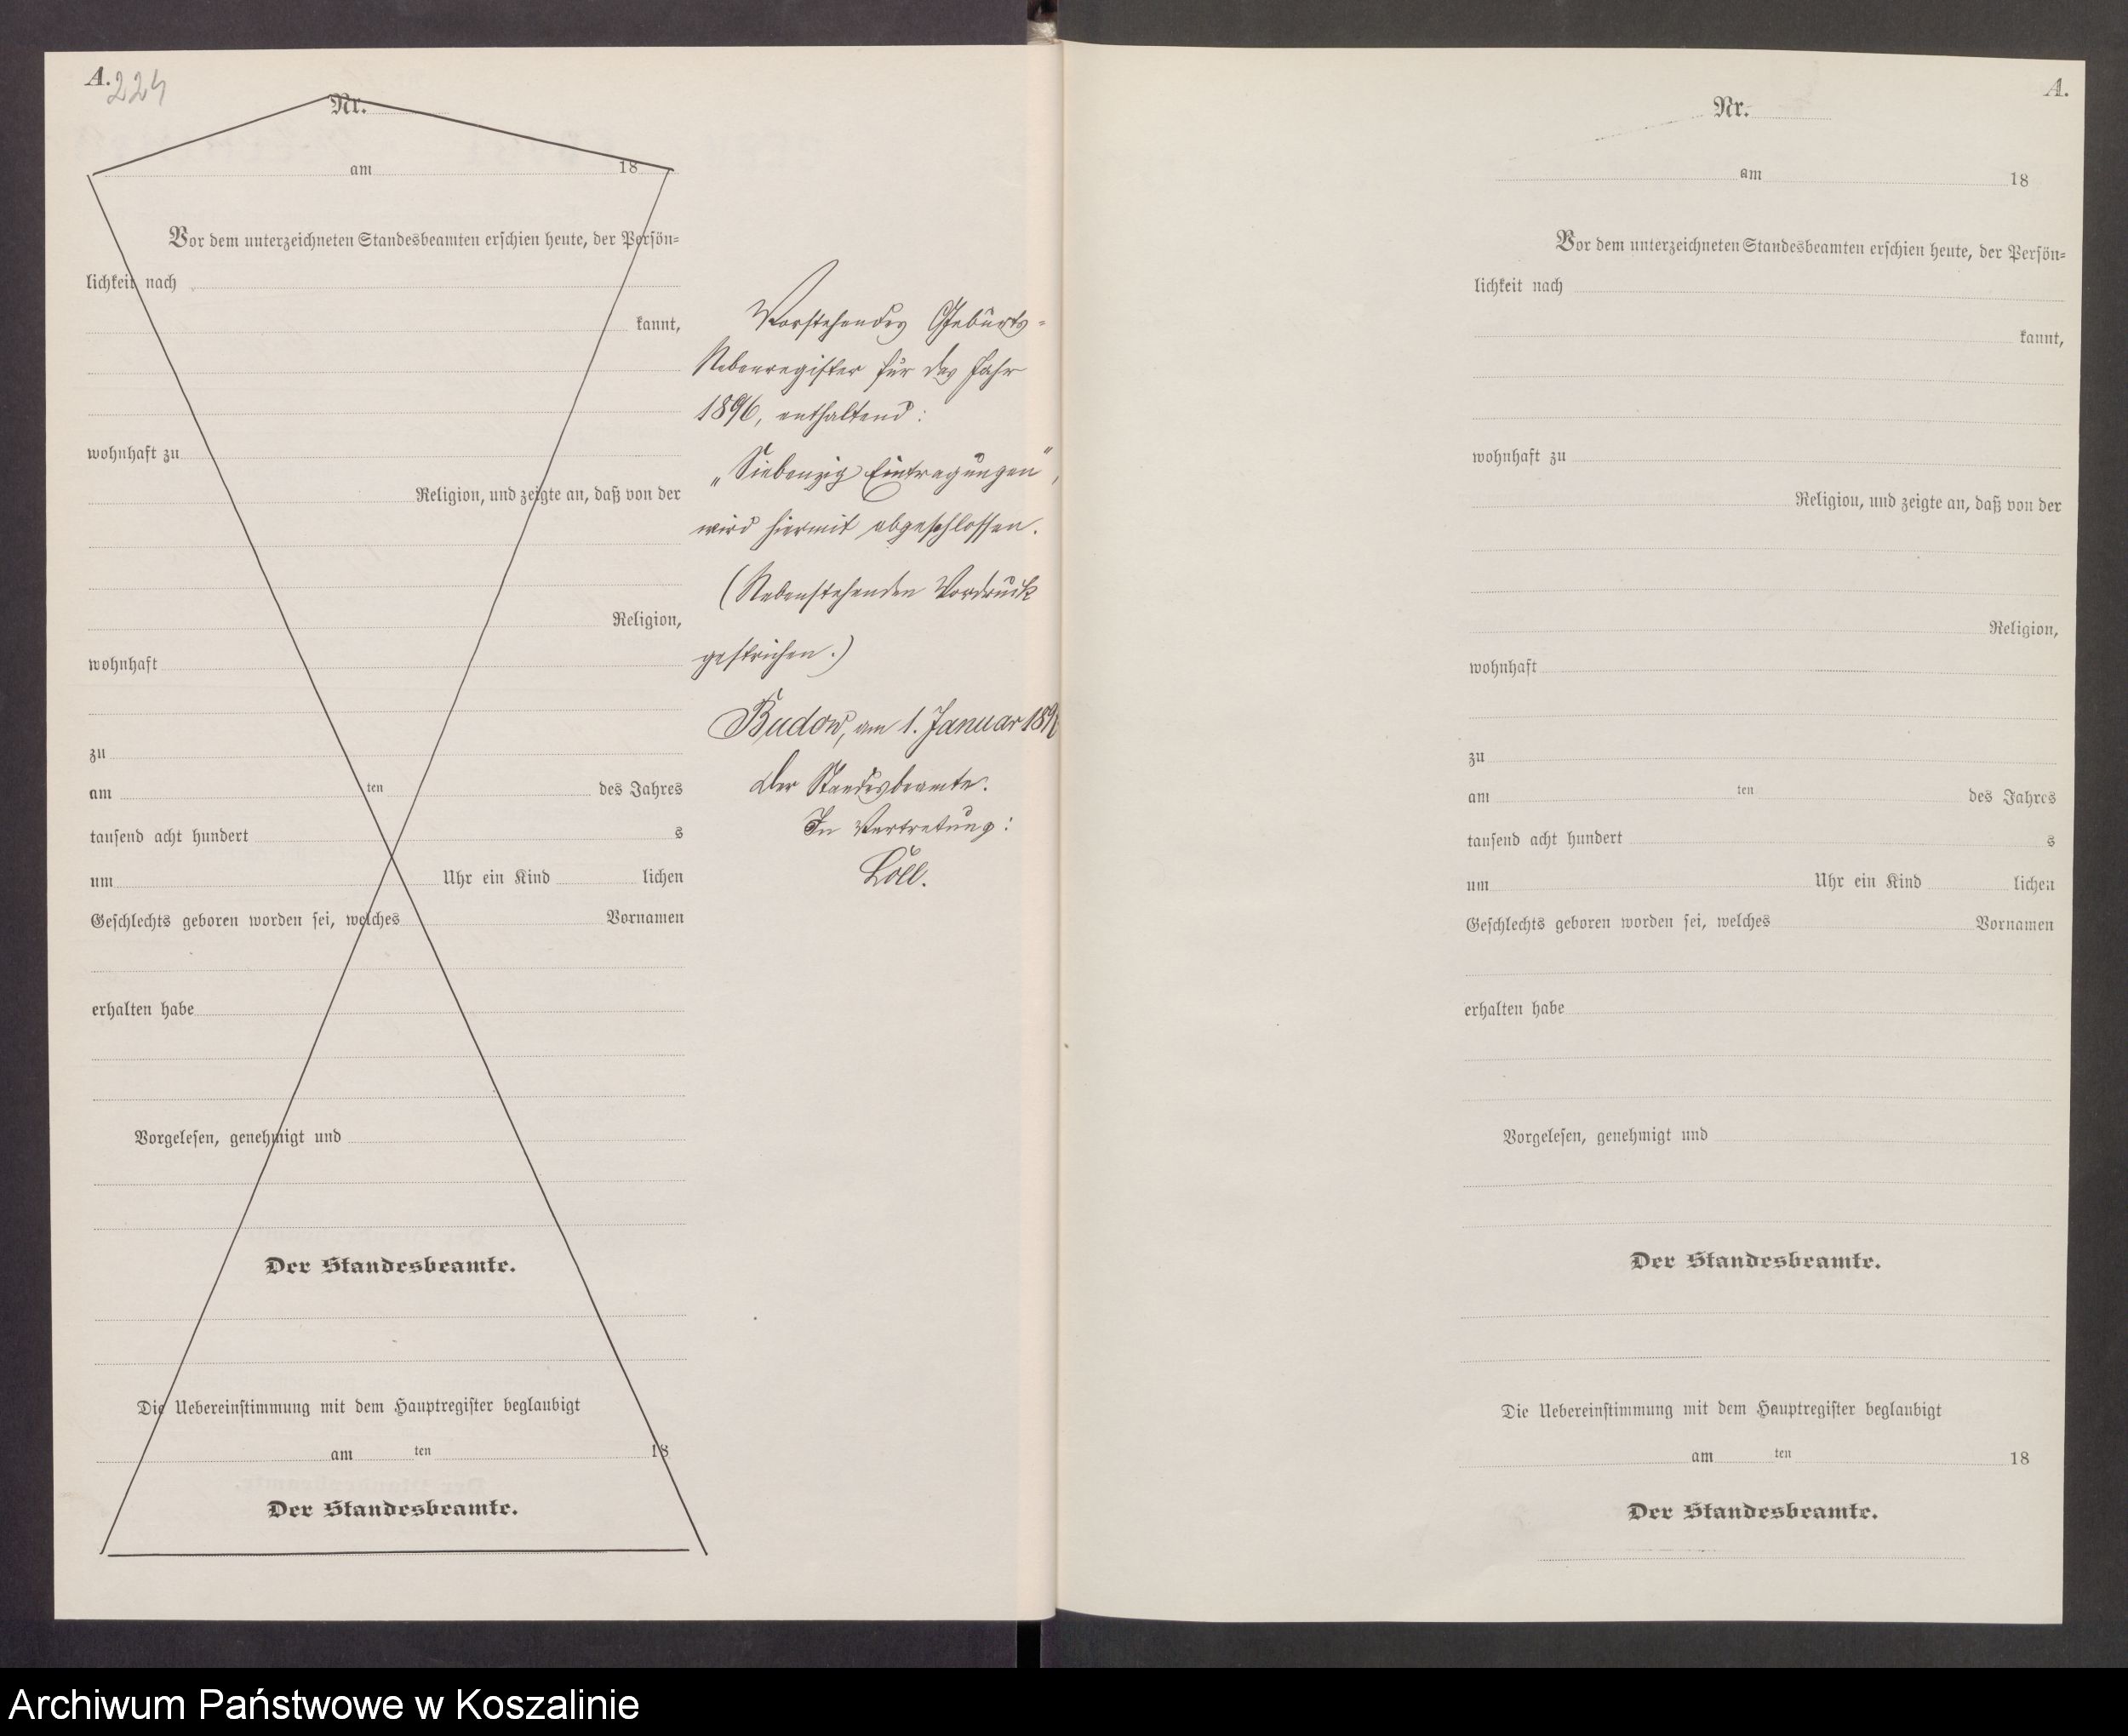 A.
224
Nr.
am 18
Vor dem unterzeichneten Standesbeamten erschien heute, der Persön=
lichkeit nach
kannt,
wohnhaft zu
Religion, und zeigte an, daß von der
Religion,
wohnhaft
zu
am ten des Jahres
tausend acht hundert s
um Uhr ein Kind lichen
Geschlechts geboren worden sei, welches Vornamen
erhalten habe
Vorgelesen, genehmigt und
Der Standesbeamte.
Die Uebereinstimmung mit dem Hauptregister beglaubigt
am ten 18
Der Standesbeamte.
Vorstehendes Geburts=
Nebenregister für das Jahr
1896, enthaltend:
„Siebenzig Eintragungen",
wird hiermit abgeschlossen.
(Nebenstehenden Vordruck
gestrichen.)
Budow, am 1. Januar
Der Standesbeamte.
In Vertretung:
Löll.
A.
Nr.
am 18
Vor dem unterzeichneten Standesbeamten erschien heute, der Persön=
lichkeit nach
kannt,
wohnhaft zu
Religion, und zeigte an, daß von der
Religion,
wohnhaft
zu
am ten des Jahres
tausend acht hundert s
um Uhr ein Kind lichen
Geschlechts geboren worden sei, welches Vornamen
erhalten habe
Vorgelesen, genehmigt und
Der Standesbeamte.
Die Uebereinstimmung mit dem Hauptregister beglaubigt
am ten 18
Der Standesbeamte.
Archiwum Państwowe w Koszalinie